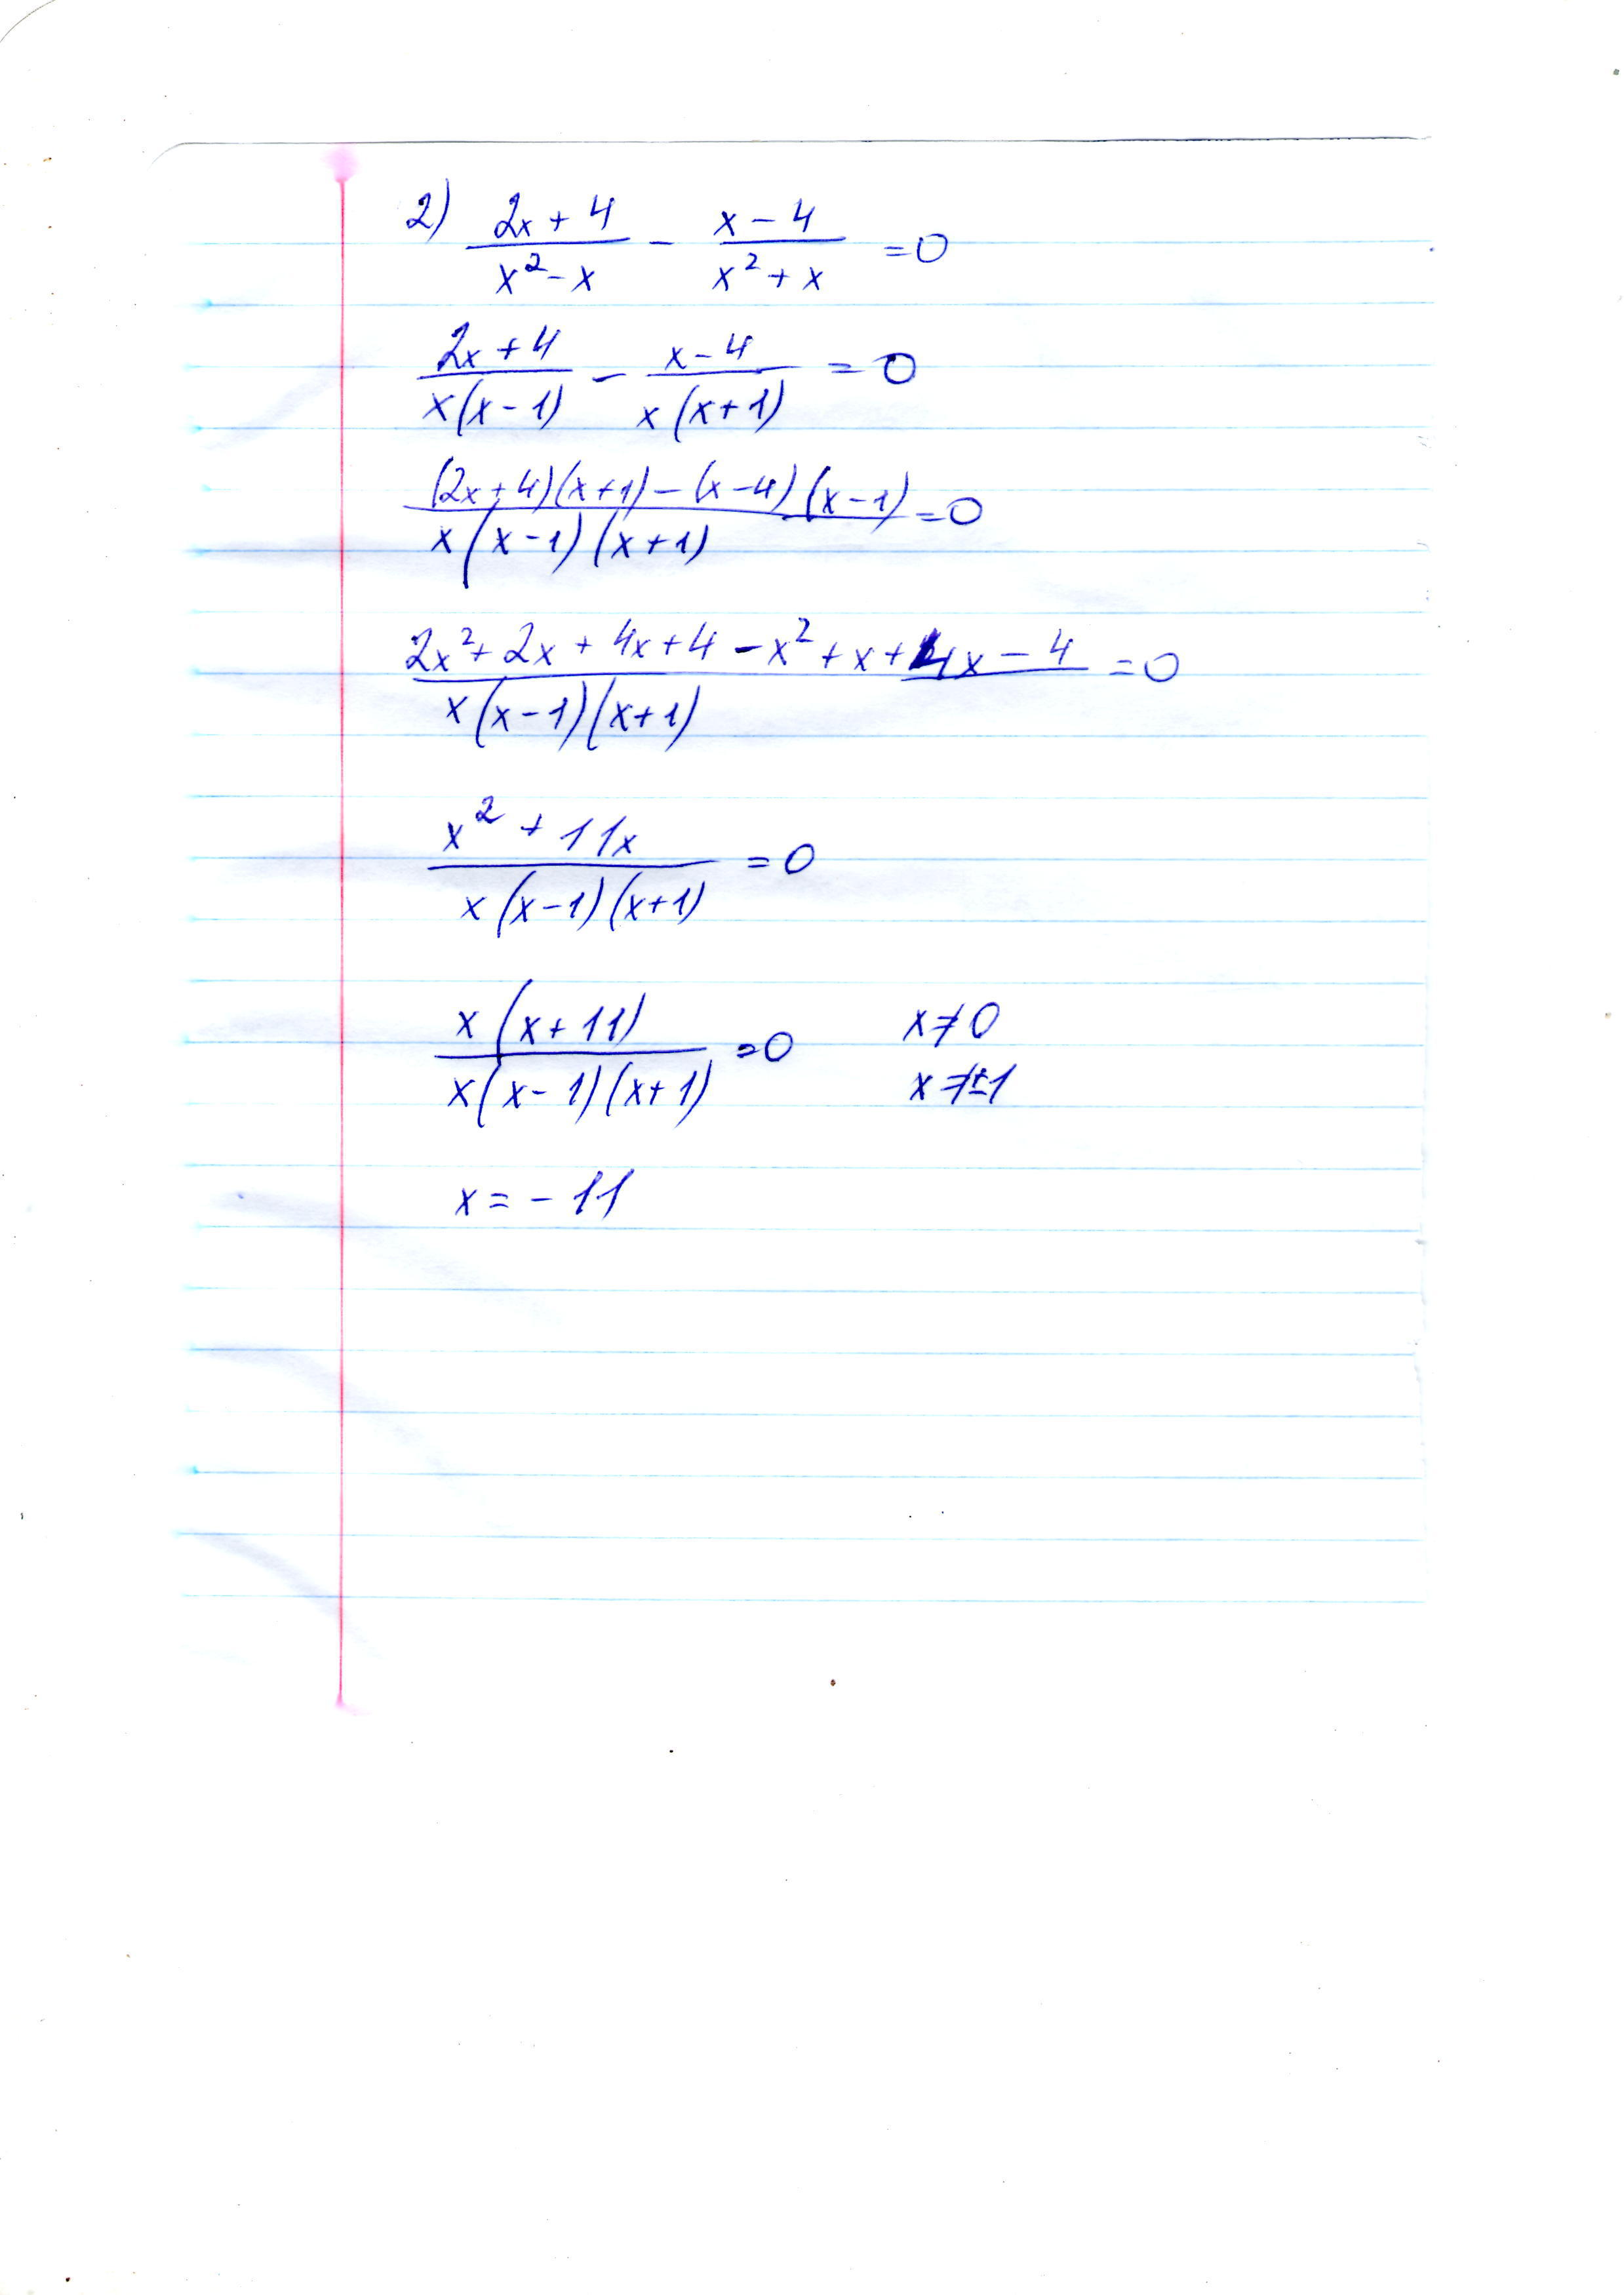 2) (2x + 4)/(x² - x) - (x - 4)/(x² + x) = 0
(2x + 4)/(x(x - 1)) - (x - 4)/(x(x + 1)) = 0
((2x + 4)(x + 1) - (x - 4)(x - 1))/(x(x - 1)(x + 1)) = 0
(2x² + 2x + 4x + 4 - x² + x + 4x - 4)/(x(x - 1)(x + 1)) = 0
(x² + 11x)/(x(x - 1)(x + 1)) = 0
(x(x + 11))/(x(x - 1)(x + 1)) = 0 x ≠ 0
x ≠ ±1
x = - 11